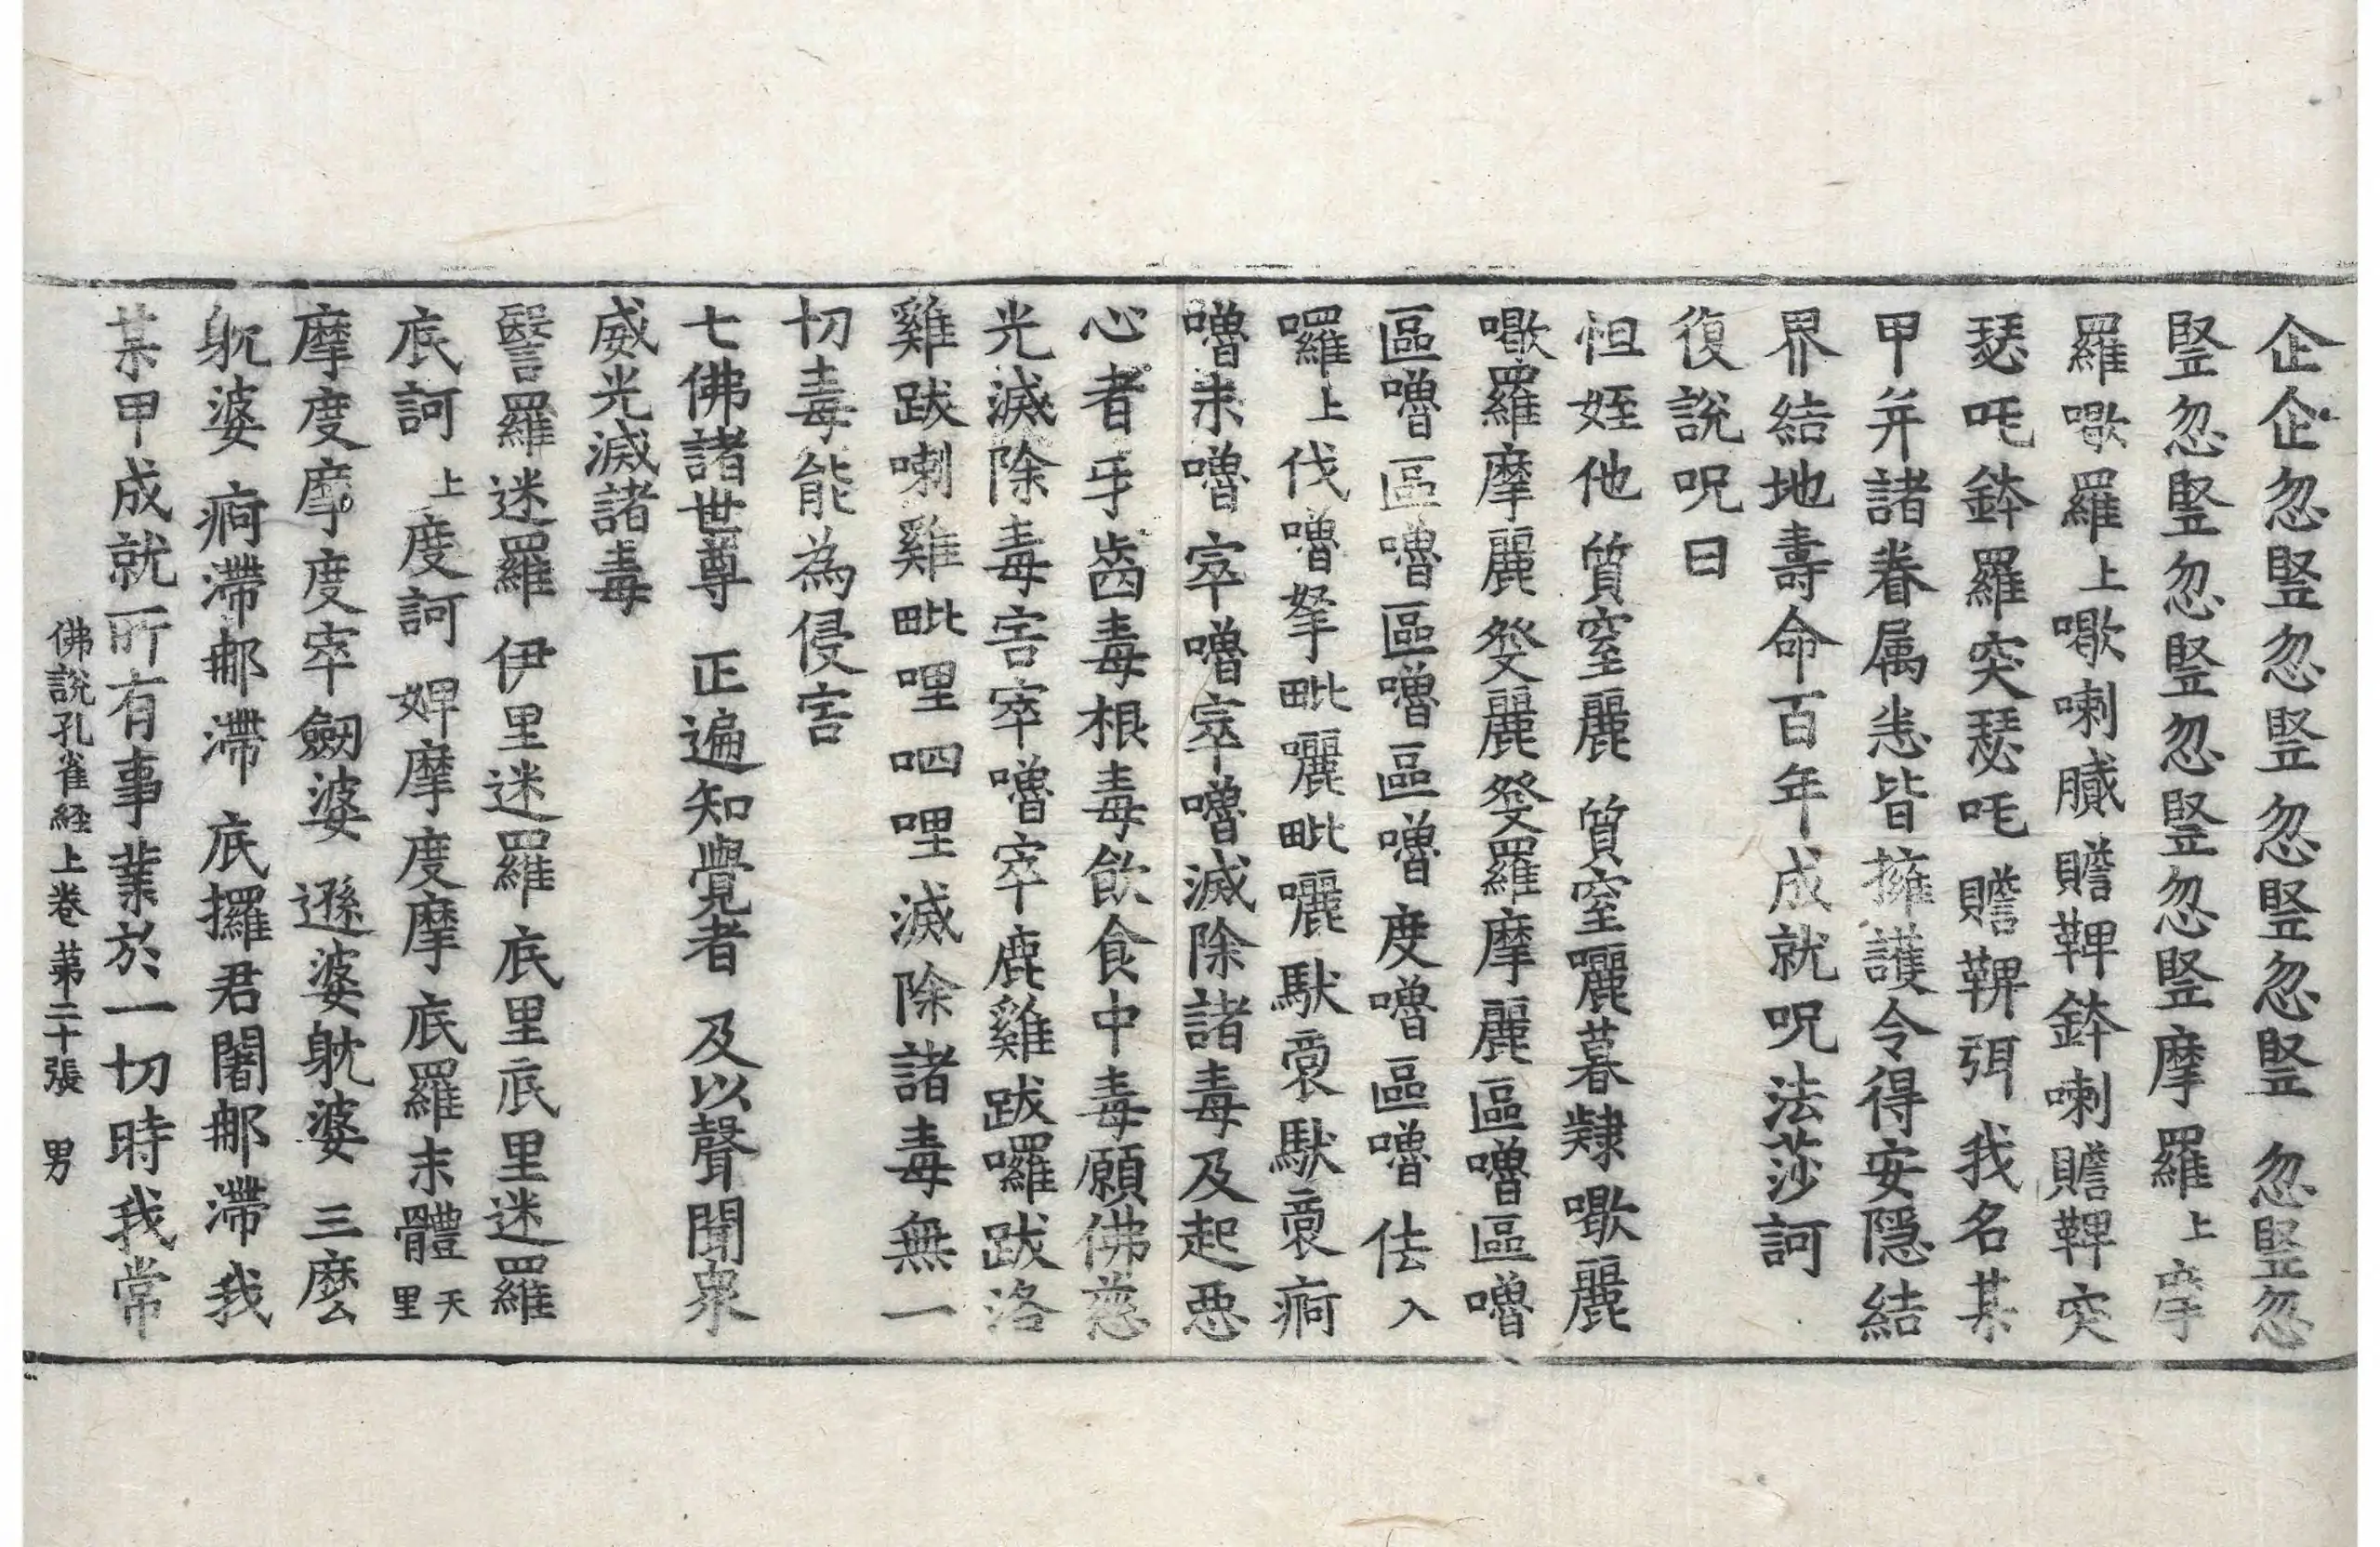 企企忽竪忽竪忽竪忽竪 忽竪忽
竪忽竪忽竪忽竪忽竪摩羅上摩
羅㘓羅上㘓喇膱贍鞞鉢喇贍鞞突
瑟吒鉢羅突瑟吒贍鞞弭 我名某
甲并諸眷属恙皆擁護令得安隱結
界結地壽命百年成就呪法莎訶
復說呪曰
怛姪他 質窒麗 質窒囇暮㷴㘓麗
㘓羅摩麗癹麗癹羅摩麗區嚕區嚕
區嚕區嚕區嚕區嚕度嚕區嚕佉入
囉上伐嚕拏毗囇毗囇馱裔馱裔痾
嚕末嚕窣嚕窣嚕滅除諸毒及起惡
心者牙齒毒根毒飲食中毒願佛慈
光滅除毒害窣嚕窣鹿雞跋囉跋洛
雞跋喇雞毗哩呬哩滅除諸毒無一
切毒能為侵害
七佛諸世尊 正遍知覺者 及以聲聞衆
威光滅諸毒
醫羅迷羅 伊里迷羅 底里底里迷羅
底訶上度訶 婢摩度摩底羅末體天里
摩度摩度窣劒婆 遜婆躭婆 三麼
躭婆 痾滯那滯 底攞君闍那滯 我
某甲成就所有事業於一切時我常
佛說孔雀経上卷 苐二十張 男